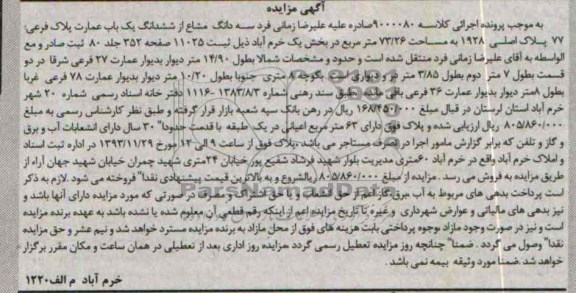 آگهی مزایده
به موجب پرونده اجرائی کلاسه ۹۰۰۰۰۸۰ صادره علیه علیرضا زمانی فرد سه دانگ مشاع از ششدانگ یک باب عمارت پلاک فرعی:
۷۷ پلاک اصلی ۱۹۲۸ به مساحت ۷۳/۲۶ متر مربع در بخش یک خرم آباد ذیل ثبت ۱۱۰۲۵ صفحه ۳۵۲ جلد ۸۰ ثبت صادر و مع
الواسطه به آقای علیرضا زمانی فرد منتقل شده است و حدود و مشخصات شمالا بطول ۱۴/۹۰ متر دیوار بدیوار عمارت ۲۷ فرعی شرقا در دو
قسمت بطول ۷ متر دوم بطول ۳/۸۵ متر درو دیواری است بکوچه ۸ متری جنوبا بطول ۱۰/۲۰ متر دیوار بدیوار عمارت ۷۸ فرعی غربا
بطول ۸متر دیوار بدیوار عمارت ۳۶ فرعی باقی طبق سند رهنی شماره ۱۱۱۶-۱۳۸۳/۸/۳ دفتر خانه اسناد رسمی شماره ۲۰ شهر
خرم آباد استان لرستان در قبال مبلغ ۱۶۸/۴۵۰/۰۰۰ ریال در رهن بانک سپه شعبه بازار قرار گرفته و طبق نظر کارشناس رسمی به مبلغ
۸۰۵/۸۶۰/۰۰۰ ریال ارزیابی شده و پلاک فوق دارای ۶۳ متر مربع اعیانی در یک طبقه با قدمت حدودا" ۳۰ سال دارای انشعابات آب و برق
و گاز و تلفن که برابر گزارش مامور اجرا در تصرف مستاجر می باشد .پلاک فوق از ساعت ۹ الی ۱۲ مورخ ۱۳۹۳/۱۱/۲۹ در اداره ثبت اسناد
و املاک خرم آباد واقع در خرم آباد ۶۰متری مدیریت بلوار شهید فرشاد شفیع پور خیابان ۲۴متری شهید چمران خیابان شهید جهان آراء از
طریق مزایده به فروش می رسد. مزایده از مبلغ ۸۰۵/۸۶۰/۰۰۰ ریالشروع و به بالاترین قیمت پیشنهادی نقدا" فروخته می شود .لازم به ذکر
است پرداخت بدهی های مربوط به آب ،برق ،گاز اعم از حق انشعاب و یا حق اشتراک و مصرف در صورتی که مورد مزایده دارای آنها باشد و
نیز بدهی های مالیاتی و عوارض شهرداری و غیره تا تاریخ مزایده اعم از اینکه رقم قطعی آن معلوم شده یا نشده باشد به عهده برنده مزایده
است و نیز در صورت وجود مازاد وجوه پرداختی بابت هزینه های فوق از محل مازاد به برنده مزایده مسترد خواهد شد و نیم عشر و حق مزایده
نقدا" وصول می گردد . ضمنا" چنانچه روز مزایده تعطیل رسمی گردد مزایده روز اداری بعد از تعطیلی در همان ساعت و مکان مقرر برگزار
خواهد شد ضمنا مورد وثیقه بیمه نمی باشد.
خرم آباد م الف ۱۲۲۰